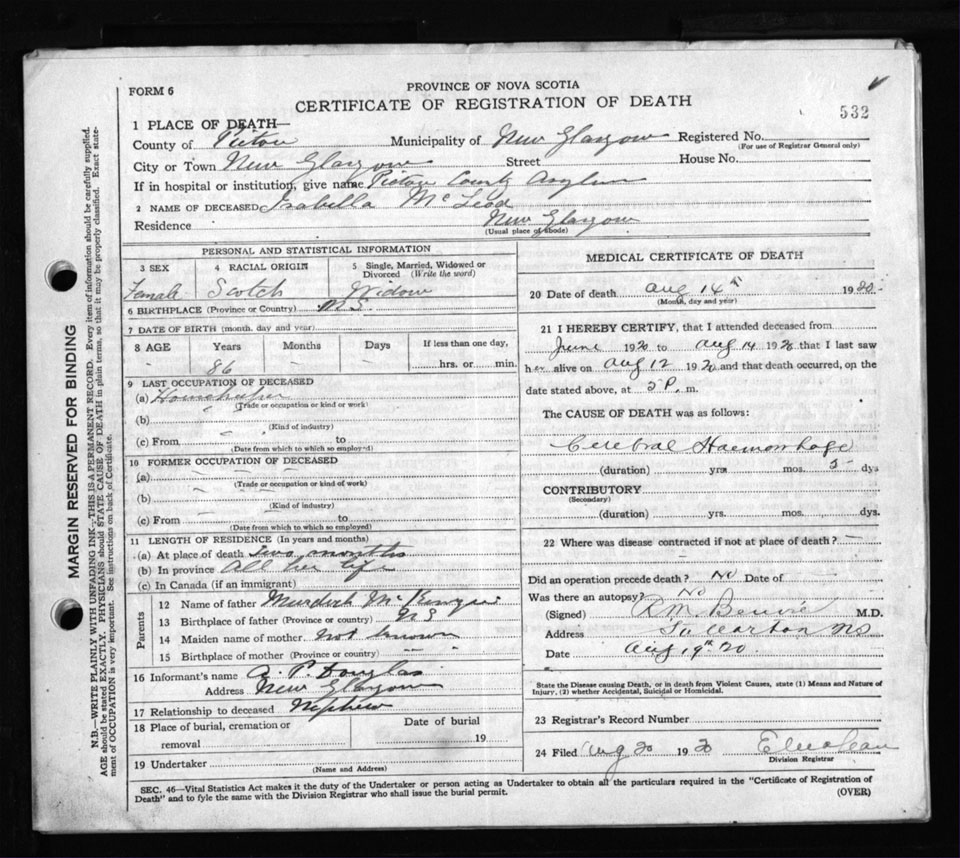 PROVINCE OF NOVA SCOTIA
FORM 6
CERTIFICATE OF REGISTRATION OF DEATH
532
1 PLACE OF DEATH—
County of Pictou Municipality of New Glasgow Registered No.
(For use of Registrar General only)
City or Town New Glasgow Street House No.
If in hospital or institution, give name Pictou County Asylum
2 NAME OF DECEASED Isabella McLeod
Residence New Glasgow
(Usual place of abode)
PERSONAL AND STATISTICAL INFORMATION
3 SEX 4 RACIAL ORIGIN 5 Single, Married, Widowed or Divorced (Write the word)
Female Scotch Widow
6 BIRTHPLACE (Province or Country) N.S.
7 DATE OF BIRTH (month, day and year)
8 AGE Years Months Days If less than one day,
- 86 - - hrs. or min.
9 LAST OCCUPATION OF DECEASED
(a) Housekeeper
(Trade or occupation or kind of work)
(b)
(Kind of industry)
(c) From to
(Date from which to which so employed)
10 FORMER OCCUPATION OF DECEASED
(a)
(Trade or occupation or kind of work)
(b)
(Kind of industry)
(c) From to
(Date from which to which so employed)
11 LENGTH OF RESIDENCE (In years and months)
(a) At place of death Two months
(b) In province All her life
(c) In Canada (if an immigrant)
Parents
12 Name of father Murdoch McKenzie
13 Birthplace of father (Province or country) NS
14 Maiden name of mother not known
15 Birthplace of mother (Province or country) — —
16 Informant's name A. P. Douglas
Address New Glasgow
17 Relationship to deceased Nephew
18 Place of burial, cremation or removal Date of burial 19
19 Undertaker
(Name and Address)
MEDICAL CERTIFICATE OF DEATH
20 Date of death Aug 14th 1920
(Month, day and year)
21 I HEREBY CERTIFY, that I attended deceased from
June 1920 to Aug 14 1920 that I last saw
her alive on Aug 12 1920 and that death occurred, on the
date stated above, at P.m.
The CAUSE OF DEATH was as follows:
Cerebral Haemorrhage
(duration) yrs mos. 5 dys
CONTRIBUTORY
(Secondary)
(duration) yrs. mos. dys
22 Where was disease contracted if not at place of death? -
Did an operation precede death? No Date of -
Was there an autopsy? No
(Signed) M.D.
Address NS
Date Aug 19th 20
State the Disease causing Death, or in death from Violent Causes, state (1) Means and Nature of Injury, (2) whether Accidental, Suicidal or Homicidal.
23 Registrar's Record Number
24 Filed Aug 20 1920
Division Registrar
SEC. 46—Vital Statistics Act makes it the duty of the Undertaker or person acting as Undertaker to obtain all the particulars required in the "Certificate of Registration of
Death" and to fyle the same with the Division Registrar who shall issue the burial permit. (OVER)
MARGIN RESERVED FOR BINDING
N.B.—WRITE PLAINLY WITH UNFADING INK—THIS IS A PERMANENT RECORD. Every item of information should be carefully supplied.
AGE should be stated EXACTLY. PHYSICIANS should STATE CAUSE OF DEATH in plain terms, so that it may be properly classified. Exact state-
ment of OCCUPATION is very important. See instructions on back of Certificate.